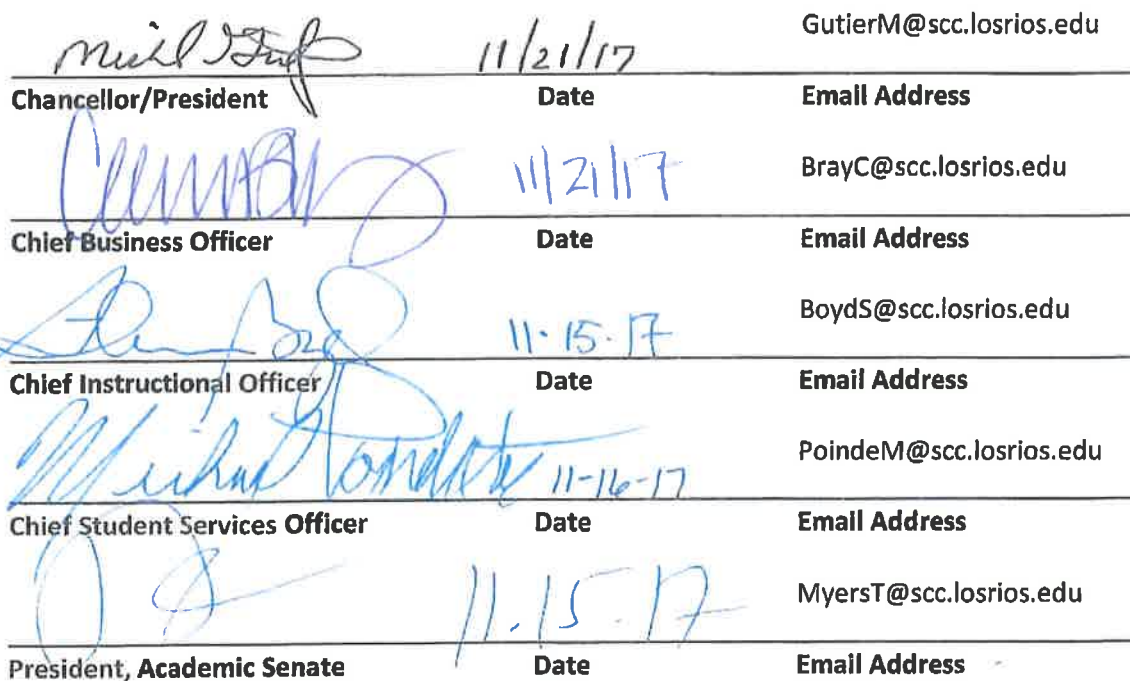 GutierM@scc.losrios.edu
11/21/17
Chancellor/President Date Email Address
11/21/17 BrayC@scc.losrios.edu
Chief Business Officer Date Email Address
11-15-17 BoydS@scc.losrios.edu
Chief Instructional Officer Date Email Address
Michael Poindexter 11-16-17 PoindeM@scc.losrios.edu
Chief Student Services Officer Date Email Address
11.15.17 MyersT@scc.losrios.edu
President, Academic Senate Date Email Address